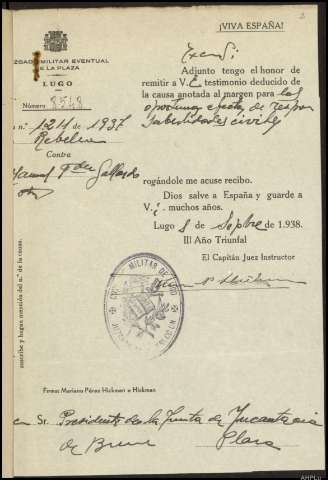 ¡VIVA ESPAÑA!
ZGADO MILITAR EVENTUAL
DE LA PLAZA
LUGO
Número 8548
n.° 1211 de 1937
Rebelion
Contra
Gallardo
Adjunto tengo el honor de
remitir a V. E testimonio deducido de
la causa anotada al margen para los
oportunos efectos de respon
sabilidades civiles
rogándole me acuse recibo.
Dios salve a España y guarde a
V. muchos años.
Lugo 5 de Sepbre de 1938.
III Año Triunfal
El Capitán Juez Instructor
MILITAR DE
suscribe y hagase mención del n.° de la causa.
Firma: Mariano Pérez Hickman e Hickman
Sr. Presidente de la Junta de Incautacion
de Bienes Plaza
AHPLu